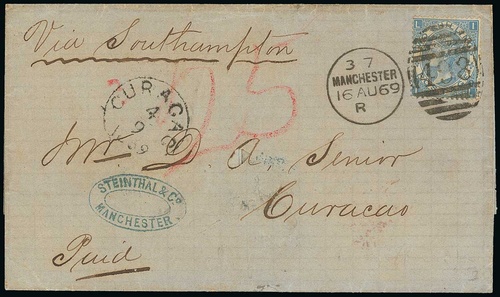 Via Southampton
L I
37
MANCHESTER
16 AU 69
R
CURACAO
4
9
25
Mr D A Senior
Curacao
STEINTHAL & Co
MANCHESTER
Paid